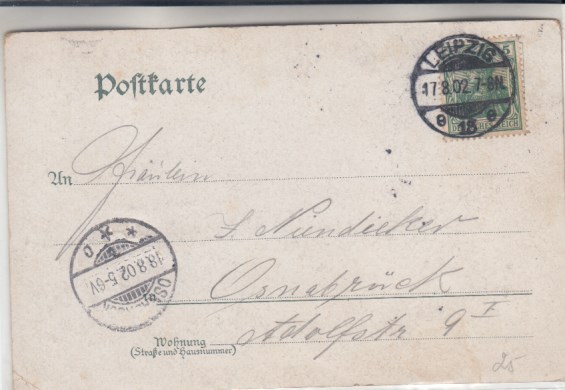 Postkarte
LEIPZIG
17.8.02.7-8N.
e 13 e
5
An Fräulein
Niendieker
Osnabrück
Adolfstr 9 I
18.8.02.5-6V.
Wohnung
(Straße und Hausnummer)
25